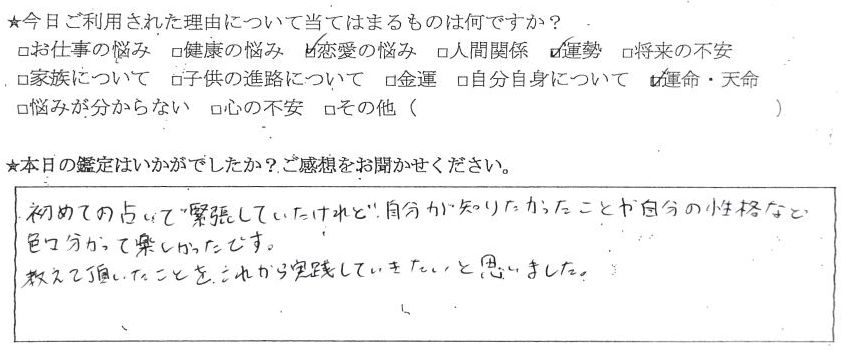 ★今日ご利用された理由について当てはまるものは何ですか？
□お仕事の悩み □健康の悩み ☑恋愛の悩み □人間関係 ☑運勢 □将来の不安
□家族について □子供の進路について □金運 □自分自身について ☑運命・天命
□悩みが分からない □心の不安 □その他（ ）
★本日の鑑定はいかがでしたか？ご感想をお聞かせください。
初めての占いで緊張していたけれど、自分が知りたかったことや自分の性格など
色々分かって楽しかったです。
教えて頂いたことを、これから実践していきたいと思いました。